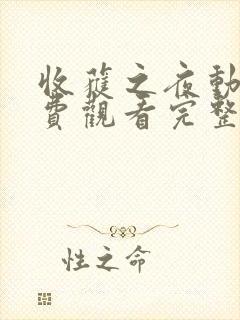 收穫之夜動
費觀看完整
性之命